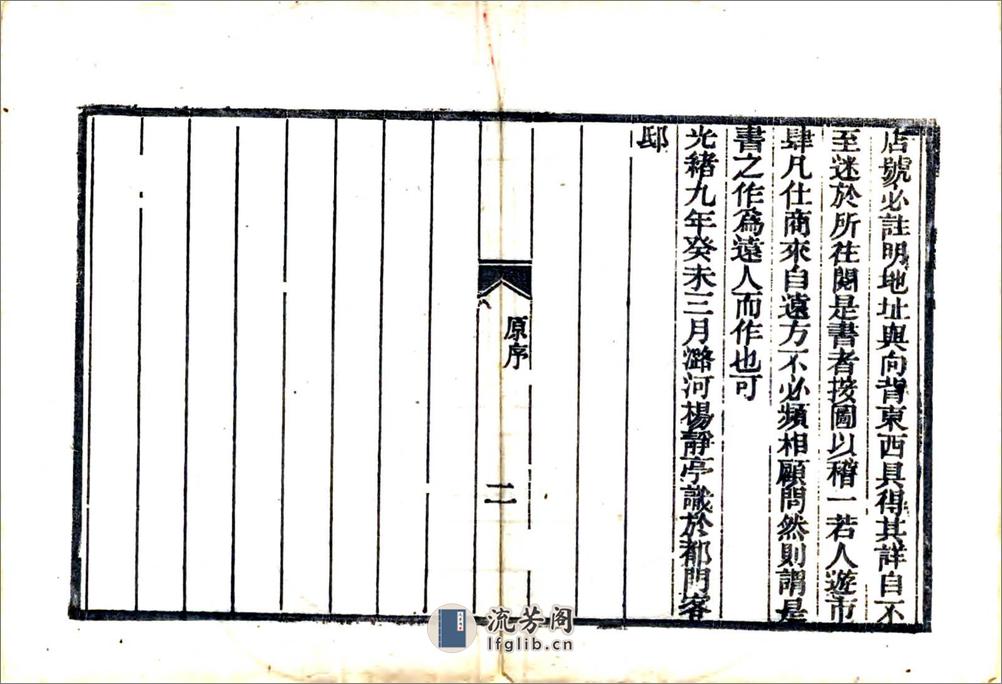 店號必註明地址與向背東西具得其詳自不
至迷於所往閱是書者按圖以稽一若人遊市
肆凡仕商來自遠方不必頻相顧問然則謂是
書之作為遠人而作也可
光緒九年癸未三月潞河楊靜亭識於都門客
邸
原序
二
流芳阁
lfglib.cn